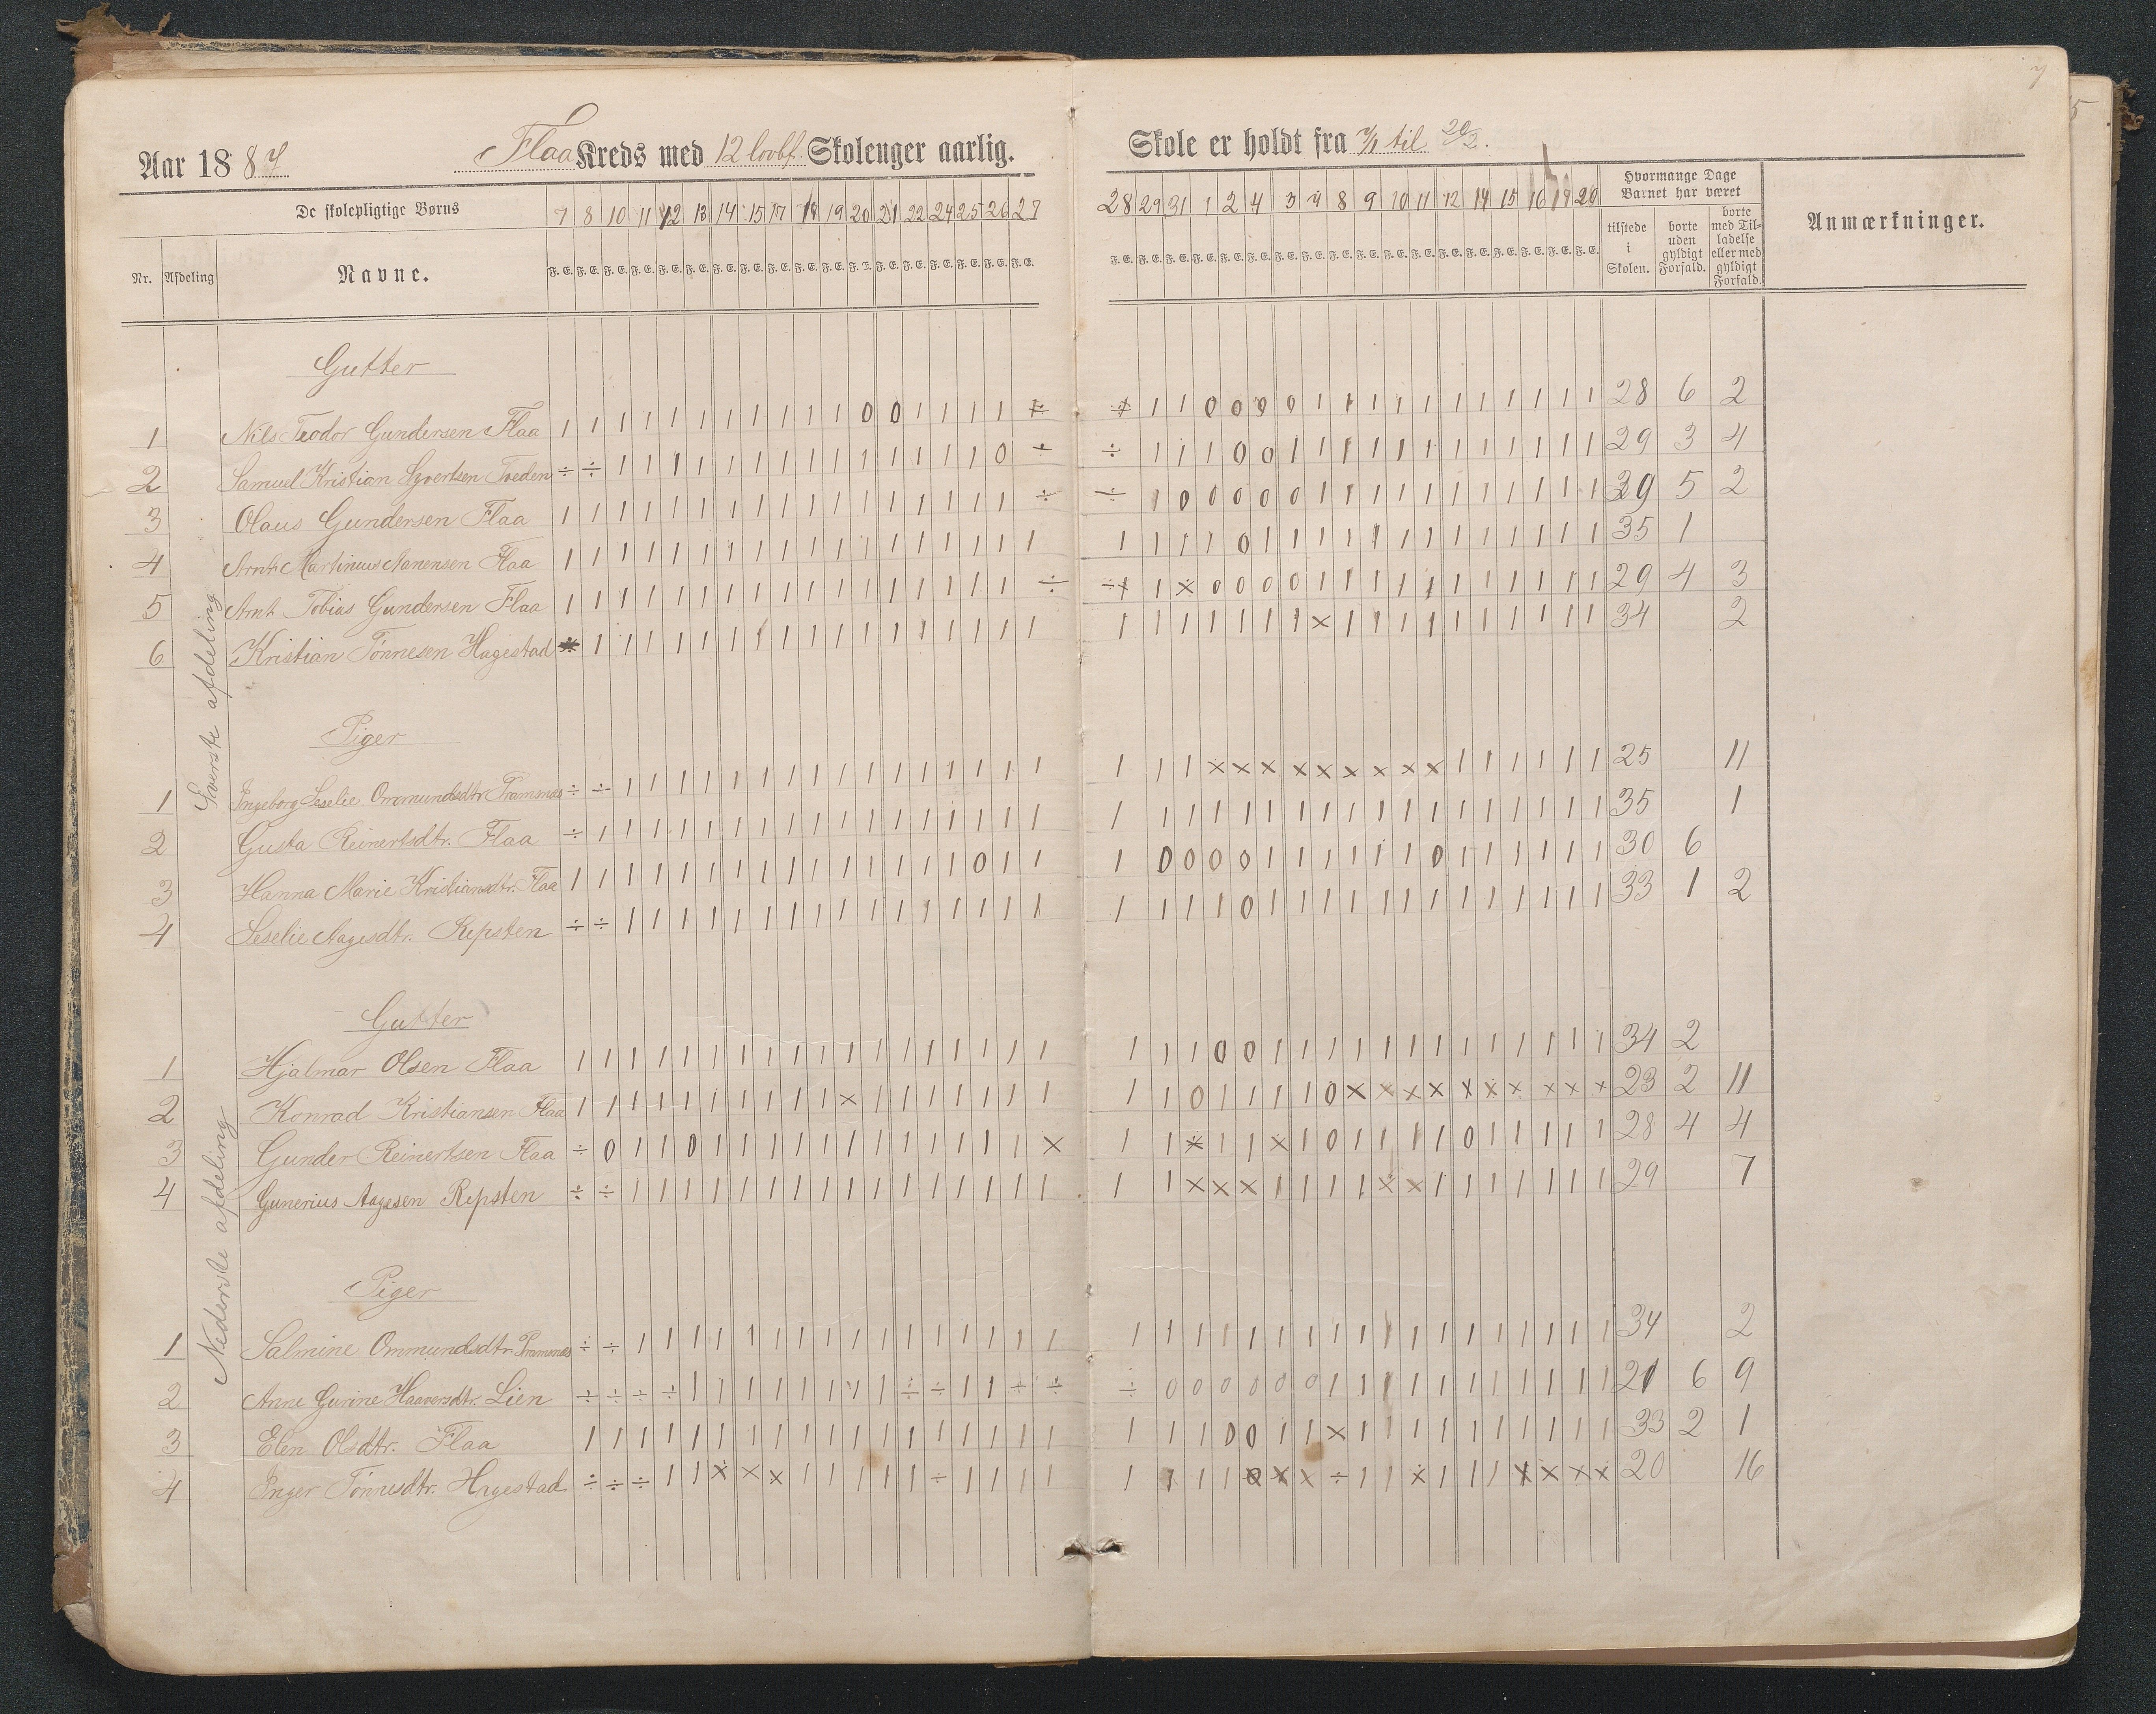 Aar 1887 Flaa Kreds med 12 lovbf. Skolenger aarlig. Skole er holdt fra 7/1 til 20/2.
De skolepligtige Børns
7 8 10 11 12 13 14 15 17 18 19 20 21 22 24 25 26 27 28 29 31 1 2 4 3 4 8 9 10 11 12 14 15 16 19 20
Hvormange Dage Barnet har været
Nr. Afdeling Navne.
tilstede i Skolen. borte uden gyldigt Forfald. borte med Tilladelse eller med gyldigt Forfald.
Anmærkninger.
Øverste afdeling
Gutter
1 Nils Teodor Gundersen Flaa 28 6 2
2 Samuel Kristian Syvertsen Tveden 29 3 4
3 Olaus Gundersen Flaa 29 5 2
4 Arnt Martinius Nanensen Flaa 35 1
5 Arnt Tobias Gundersen Flaa 29 4 3
6 Kristian Tönnesen Hagestad 34 2
Piger
1 Ingeborg Seselie Ommundsdtr. Framnæs 25 11
2 Gusta Reinertsdtr. Flaa 35 1
3 Hanna Marie Kristiansdtr. Flaa 30 6
4 Seselie Aagesdtr. Repsten 33 1 2
Nederste afdeling
Gutter
1 Hjalmar Olsen Flaa 34 2
2 Konrad Kristiansen Flaa 23 2 11
3 Gunder Reinertsen Flaa 28 4 4
4 Gunerius Aagesen Repsten 29 7
Piger
1 Salmine Ommundsdtr. Framnæs 34 2
2 Anne Gurine Haaversdtr. Lien 21 6 9
3 Elen Olsdtr. Flaa 33 2 1
4 Inger Tönnesdtr. Hagestad 20 16